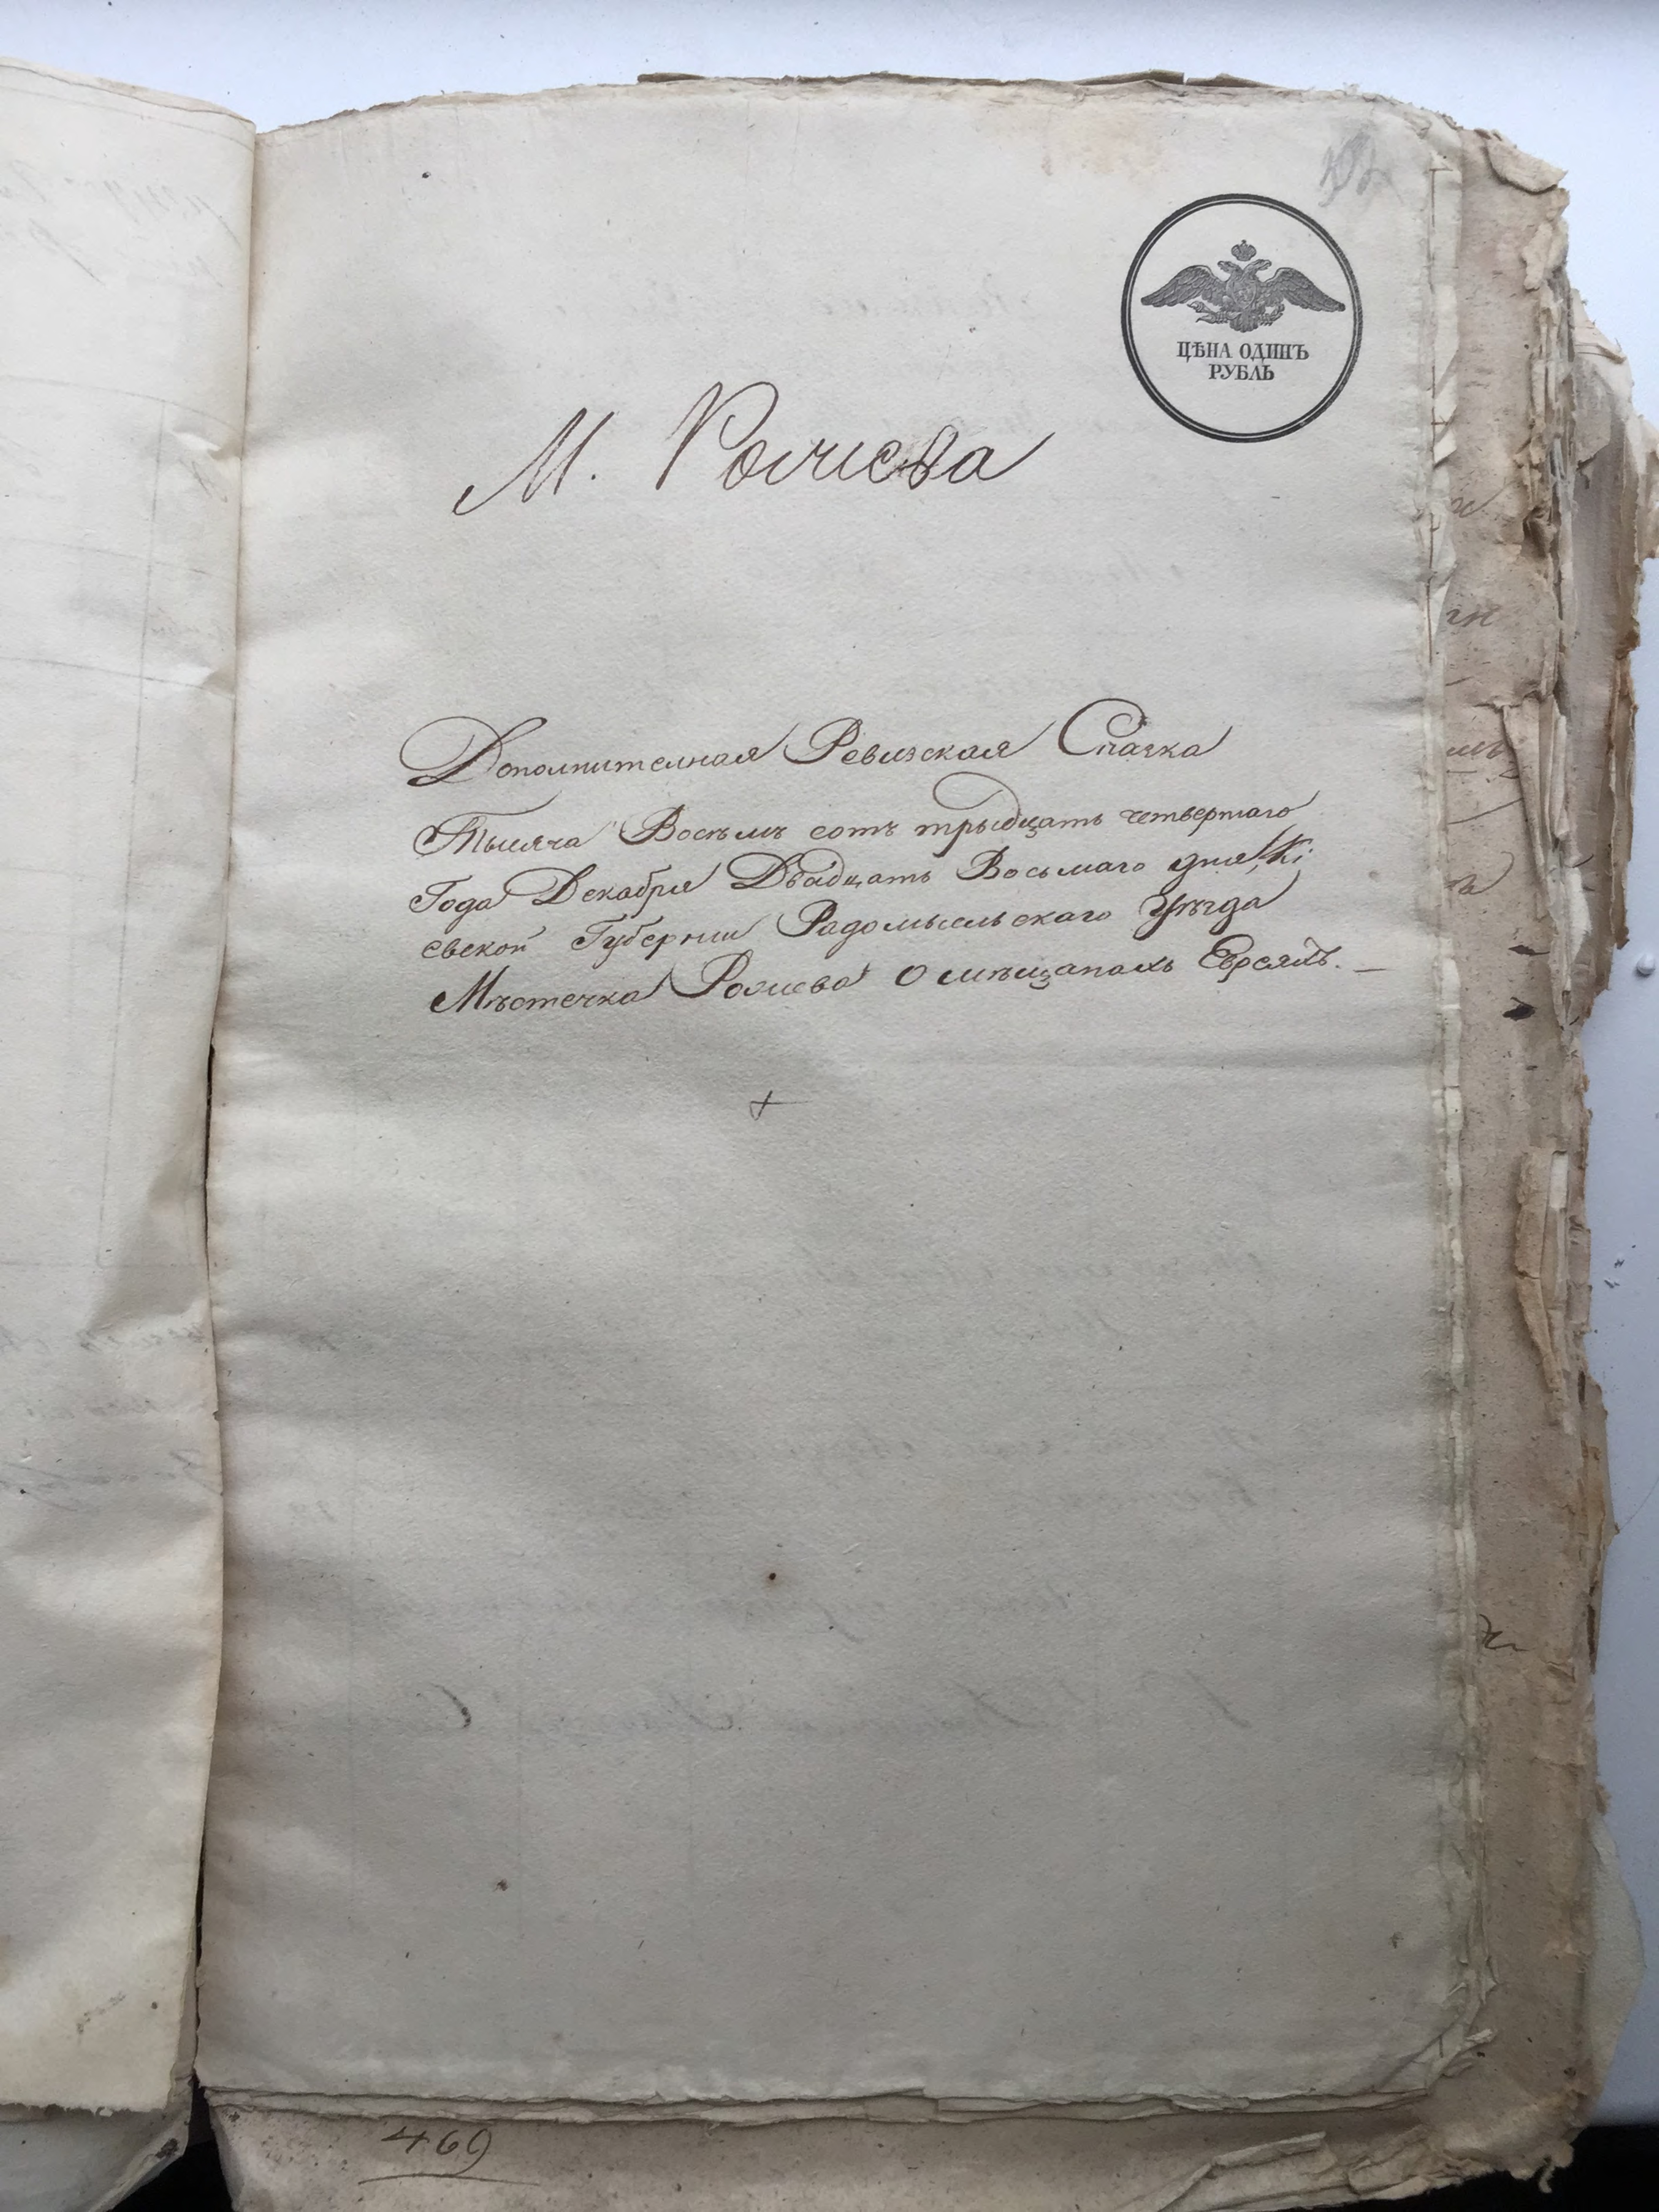 ЦѢНА ОДИНЪ
РУБЛЬ
М. Рожева
Дополнителная Ревизская Сказка
Тысяча Восѣмъ сотъ трыдцать четвертаго
Года Декабря Двадцать Восьмаго дня Кі
евской Губернии Радомысельскаго Уѣзда
Мѣстечка Рожева О мѣщанахъ Евреяхъ. —
469